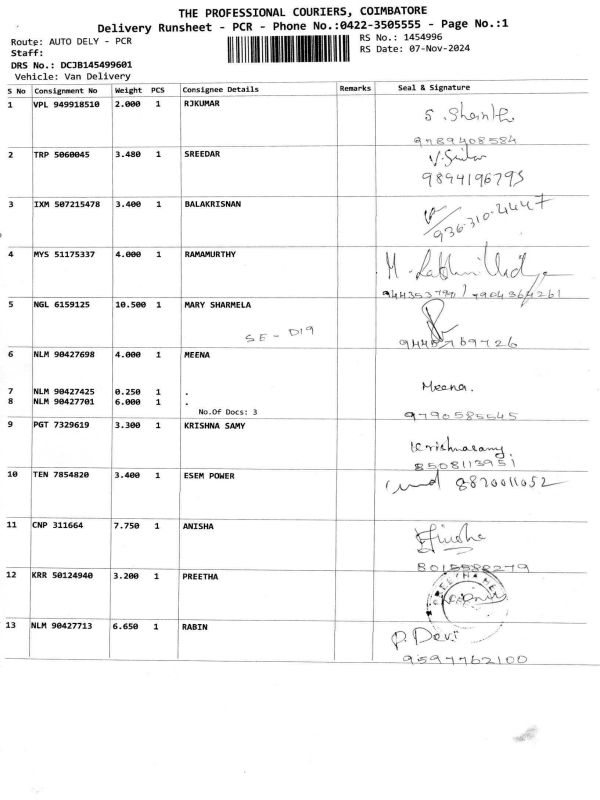 THE PROFESSIONAL COURIERS, COIMBATORE
Delivery Runsheet - PCR - Phone No.:0422-3505555 - Page No.:1
Route: AUTO DELY - PCR
RS No.: 1454996
Staff:
RS Date: 07-Nov-2024
DRS No.: DCJB145499601
Vehicle: Van Delivery
S No Consignment No Weight PCS Consignee Details Remarks Seal & Signature
1 VPL 949918510 2.000 1 RJKUMAR
9789408584
2 TRP 5060045 3.480 1 SREEDAR
9894196795
3 IXM 507215478 3.400 1 BALAKRISNAN
936-310-4447
4 MYS 51175337 4.000 1 RAMAMURTHY
5 NGL 6159125 10.500 1 MARY SHARMELA
SE - D19
9445769726
6 NLM 90427698 4.000 1 MEENA
7 NLM 90427425 0.250 1 . Meena.
8 NLM 90427701 6.000 1 .
No.Of Docs: 3
9790585545
9 PGT 7329619 3.300 1 KRISHNA SAMY
Krishnasamy
8508113951
10 TEN 7854820 3.400 1 ESEM POWER 8870011052
11 CNP 311664 7.750 1 ANISHA
8015588279
12 KRR 50124940 3.200 1 PREETHA
13 NLM 90427713 6.650 1 RABIN P. Devi
9597762100